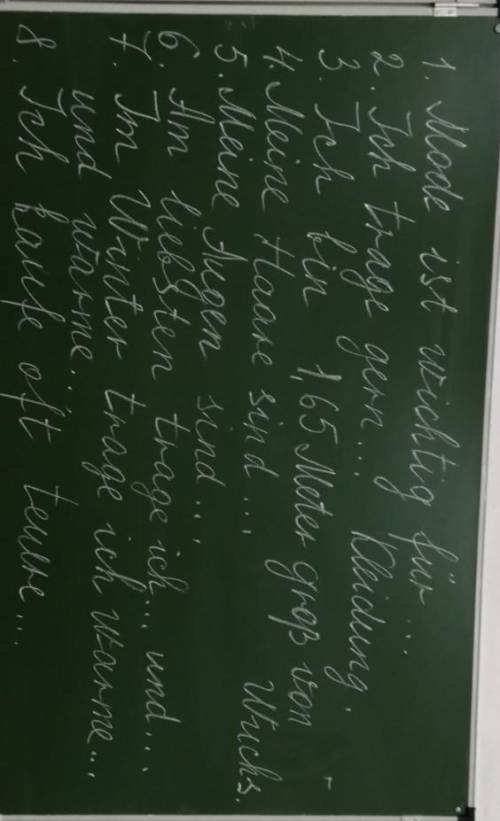 1. Mode ist wichtig für ...
2. Ich trage gern ... Kleidung.
3. Ich bin 1,65 Meter groß von
Wuchs.
4. Meine Haare sind ...
5. Meine Augen sind ...
6. Am liebsten trage ich ... und ...
7. Im Winter trage ich warme ...
und warme ...
8. Ich kaufe oft teure ...